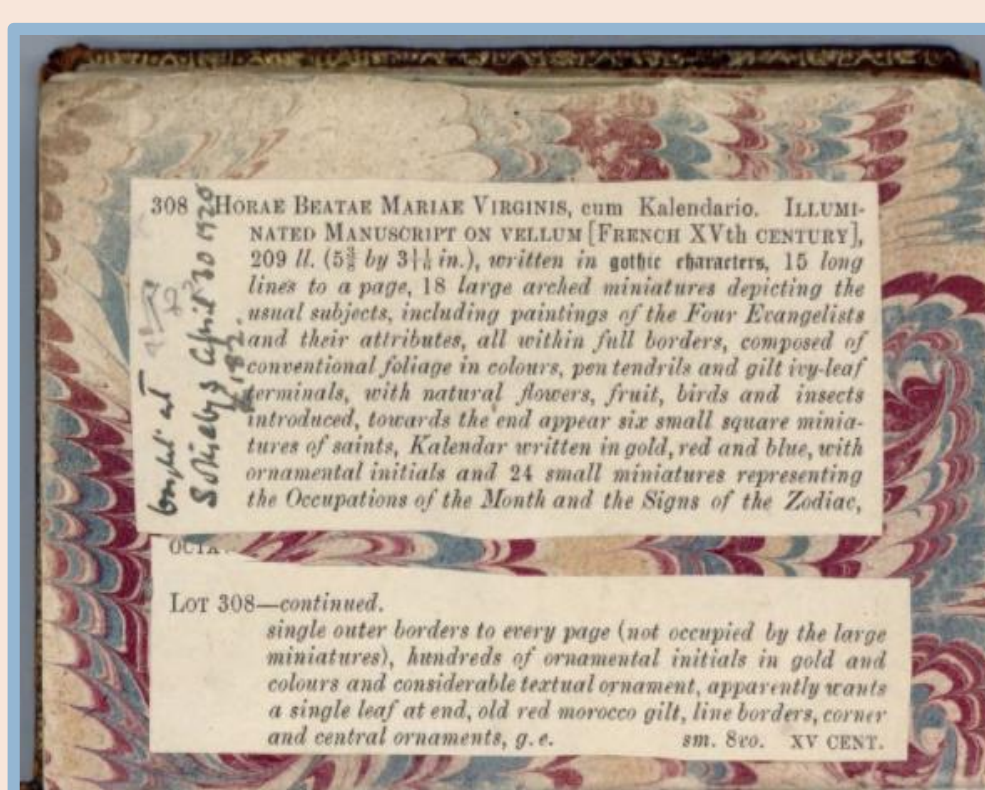 308 HORAE BEATAE MARIAE VIRGINIS, cum Kalendario. ILLUMI-
NATED MANUSCRIPT ON VELLUM [FRENCH XVth CENTURY],
209 ll. (5⅜ by 3 11/16 in.), written in gothic characters, 15 long
lines to a page, 18 large arched miniatures depicting the
usual subjects, including paintings of the Four Evangelists
and their attributes, all within full borders, composed of
conventional foliage in colours, pen tendrils and gilt ivy-leaf
terminals, with natural flowers, fruit, birds and insects
introduced, towards the end appear six small square minia-
tures of saints, Kalendar written in gold, red and blue, with
ornamental initials and 24 small miniatures representing
the Occupations of the Month and the Signs of the Zodiac,
bought at
Sotheby's April 30 1920
£182
OCTA
LOT 308—continued.
single outer borders to every page (not occupied by the large
miniatures), hundreds of ornamental initials in gold and
colours and considerable textual ornament, apparently wants
a single leaf at end, old red morocco gilt, line borders, corner
and central ornaments, g. e. sm. 8vo. XV CENT.